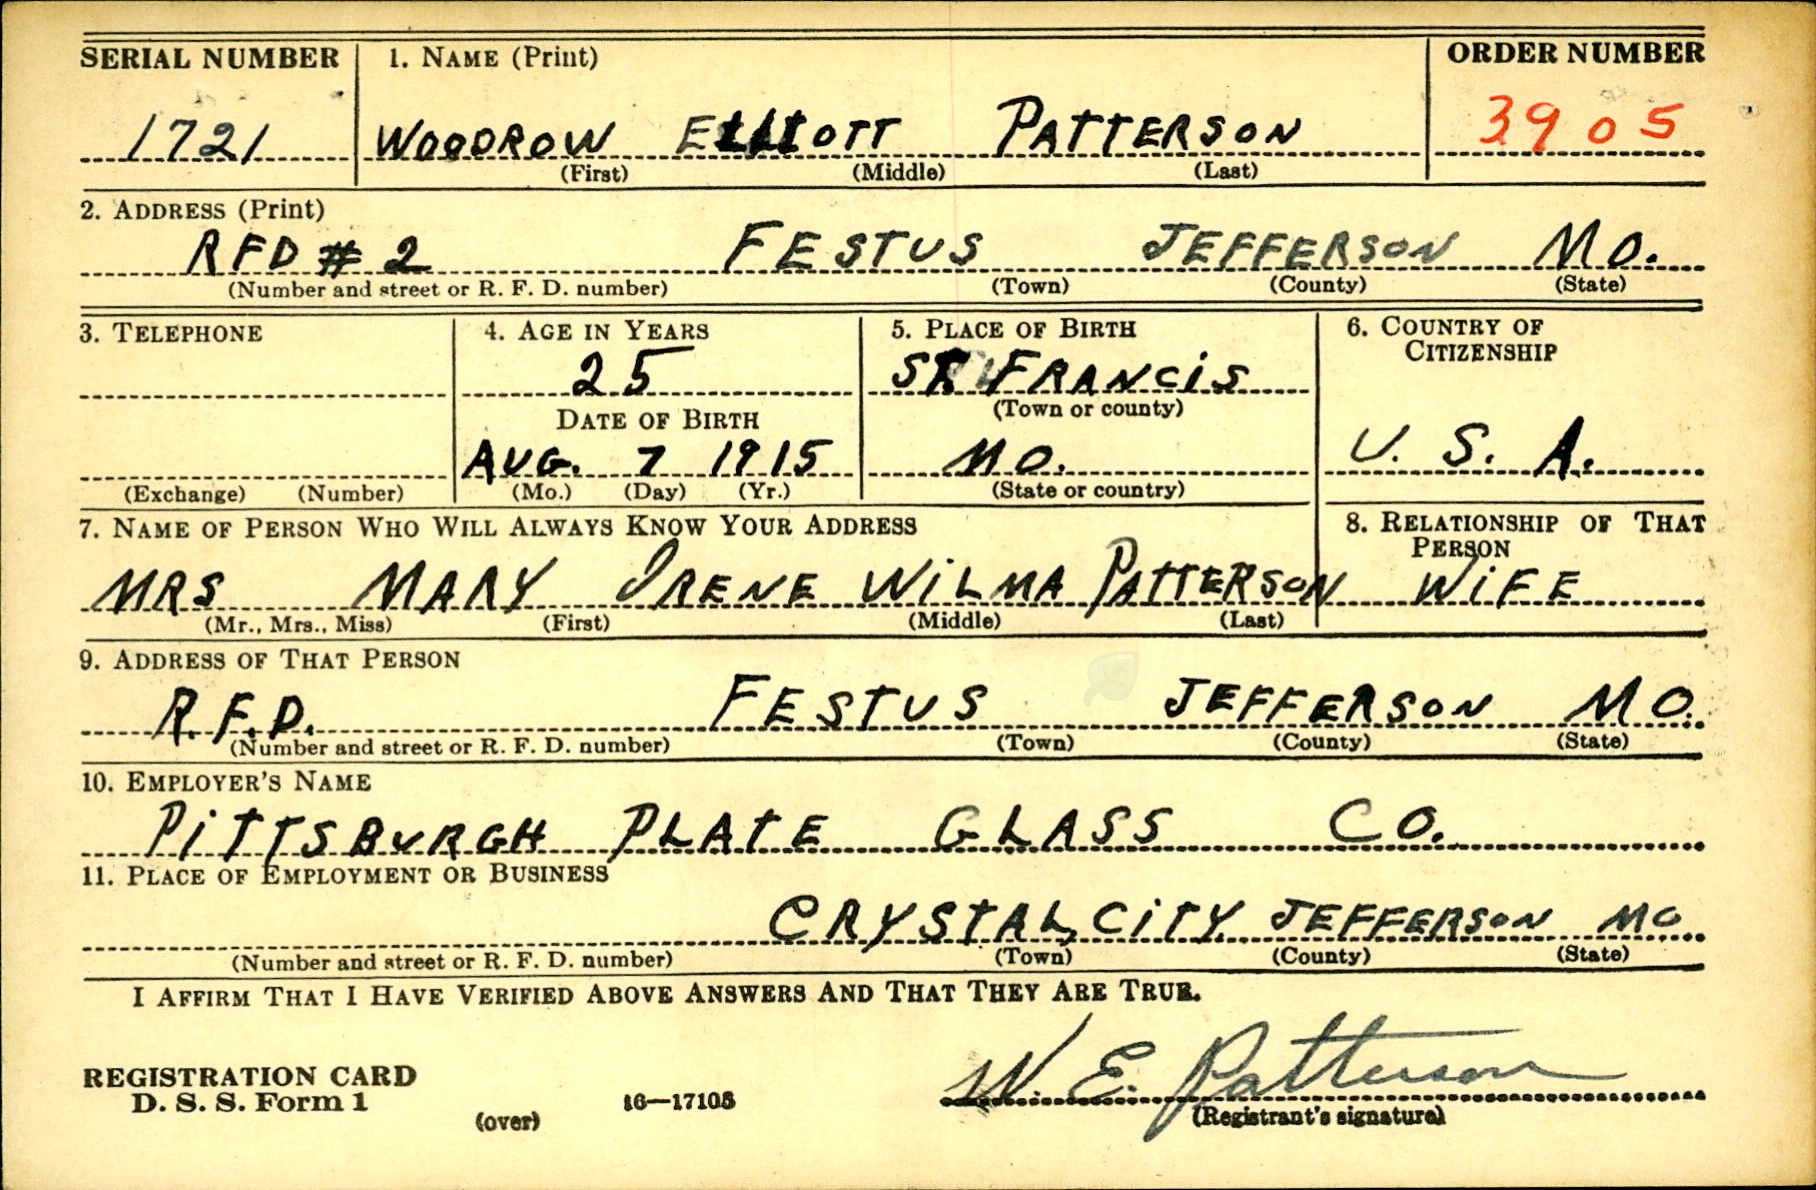 SERIAL NUMBER 1. NAME (Print) ORDER NUMBER
1721 WOODROW ELLIOTT PATTERSON 3905
(First) (Middle) (Last)
2. ADDRESS (Print)
RFD # 2 FESTUS JEFFERSON MO.
(Number and street or R. F. D. number) (Town) (County) (State)
3. TELEPHONE 4. AGE IN YEARS 5. PLACE OF BIRTH 6. COUNTRY OF CITIZENSHIP
25 ST FRANCIS
(Town or county)
DATE OF BIRTH
AUG. 7 1915 MO. U. S. A.
(Exchange) (Number) (Mo.) (Day) (Yr.) (State or country)
7. NAME OF PERSON WHO WILL ALWAYS KNOW YOUR ADDRESS 8. RELATIONSHIP OF THAT PERSON
MRS MARY IRENE WILMA PATTERSON WIFE
(Mr., Mrs., Miss) (First) (Middle) (Last)
9. ADDRESS OF THAT PERSON
R.F.D. FESTUS JEFFERSON MO.
(Number and street or R. F. D. number) (Town) (County) (State)
10. EMPLOYER'S NAME
PITTSBURGH PLATE GLASS CO.
11. PLACE OF EMPLOYMENT OR BUSINESS
CRYSTAL CITY JEFFERSON MO
(Number and street or R. F. D. number) (Town) (County) (State)
I AFFIRM THAT I HAVE VERIFIED ABOVE ANSWERS AND THAT THEY ARE TRUE.
W. E. Patterson
REGISTRATION CARD
D. S. S. Form 1 16—17105
(over) (Registrant's signature)